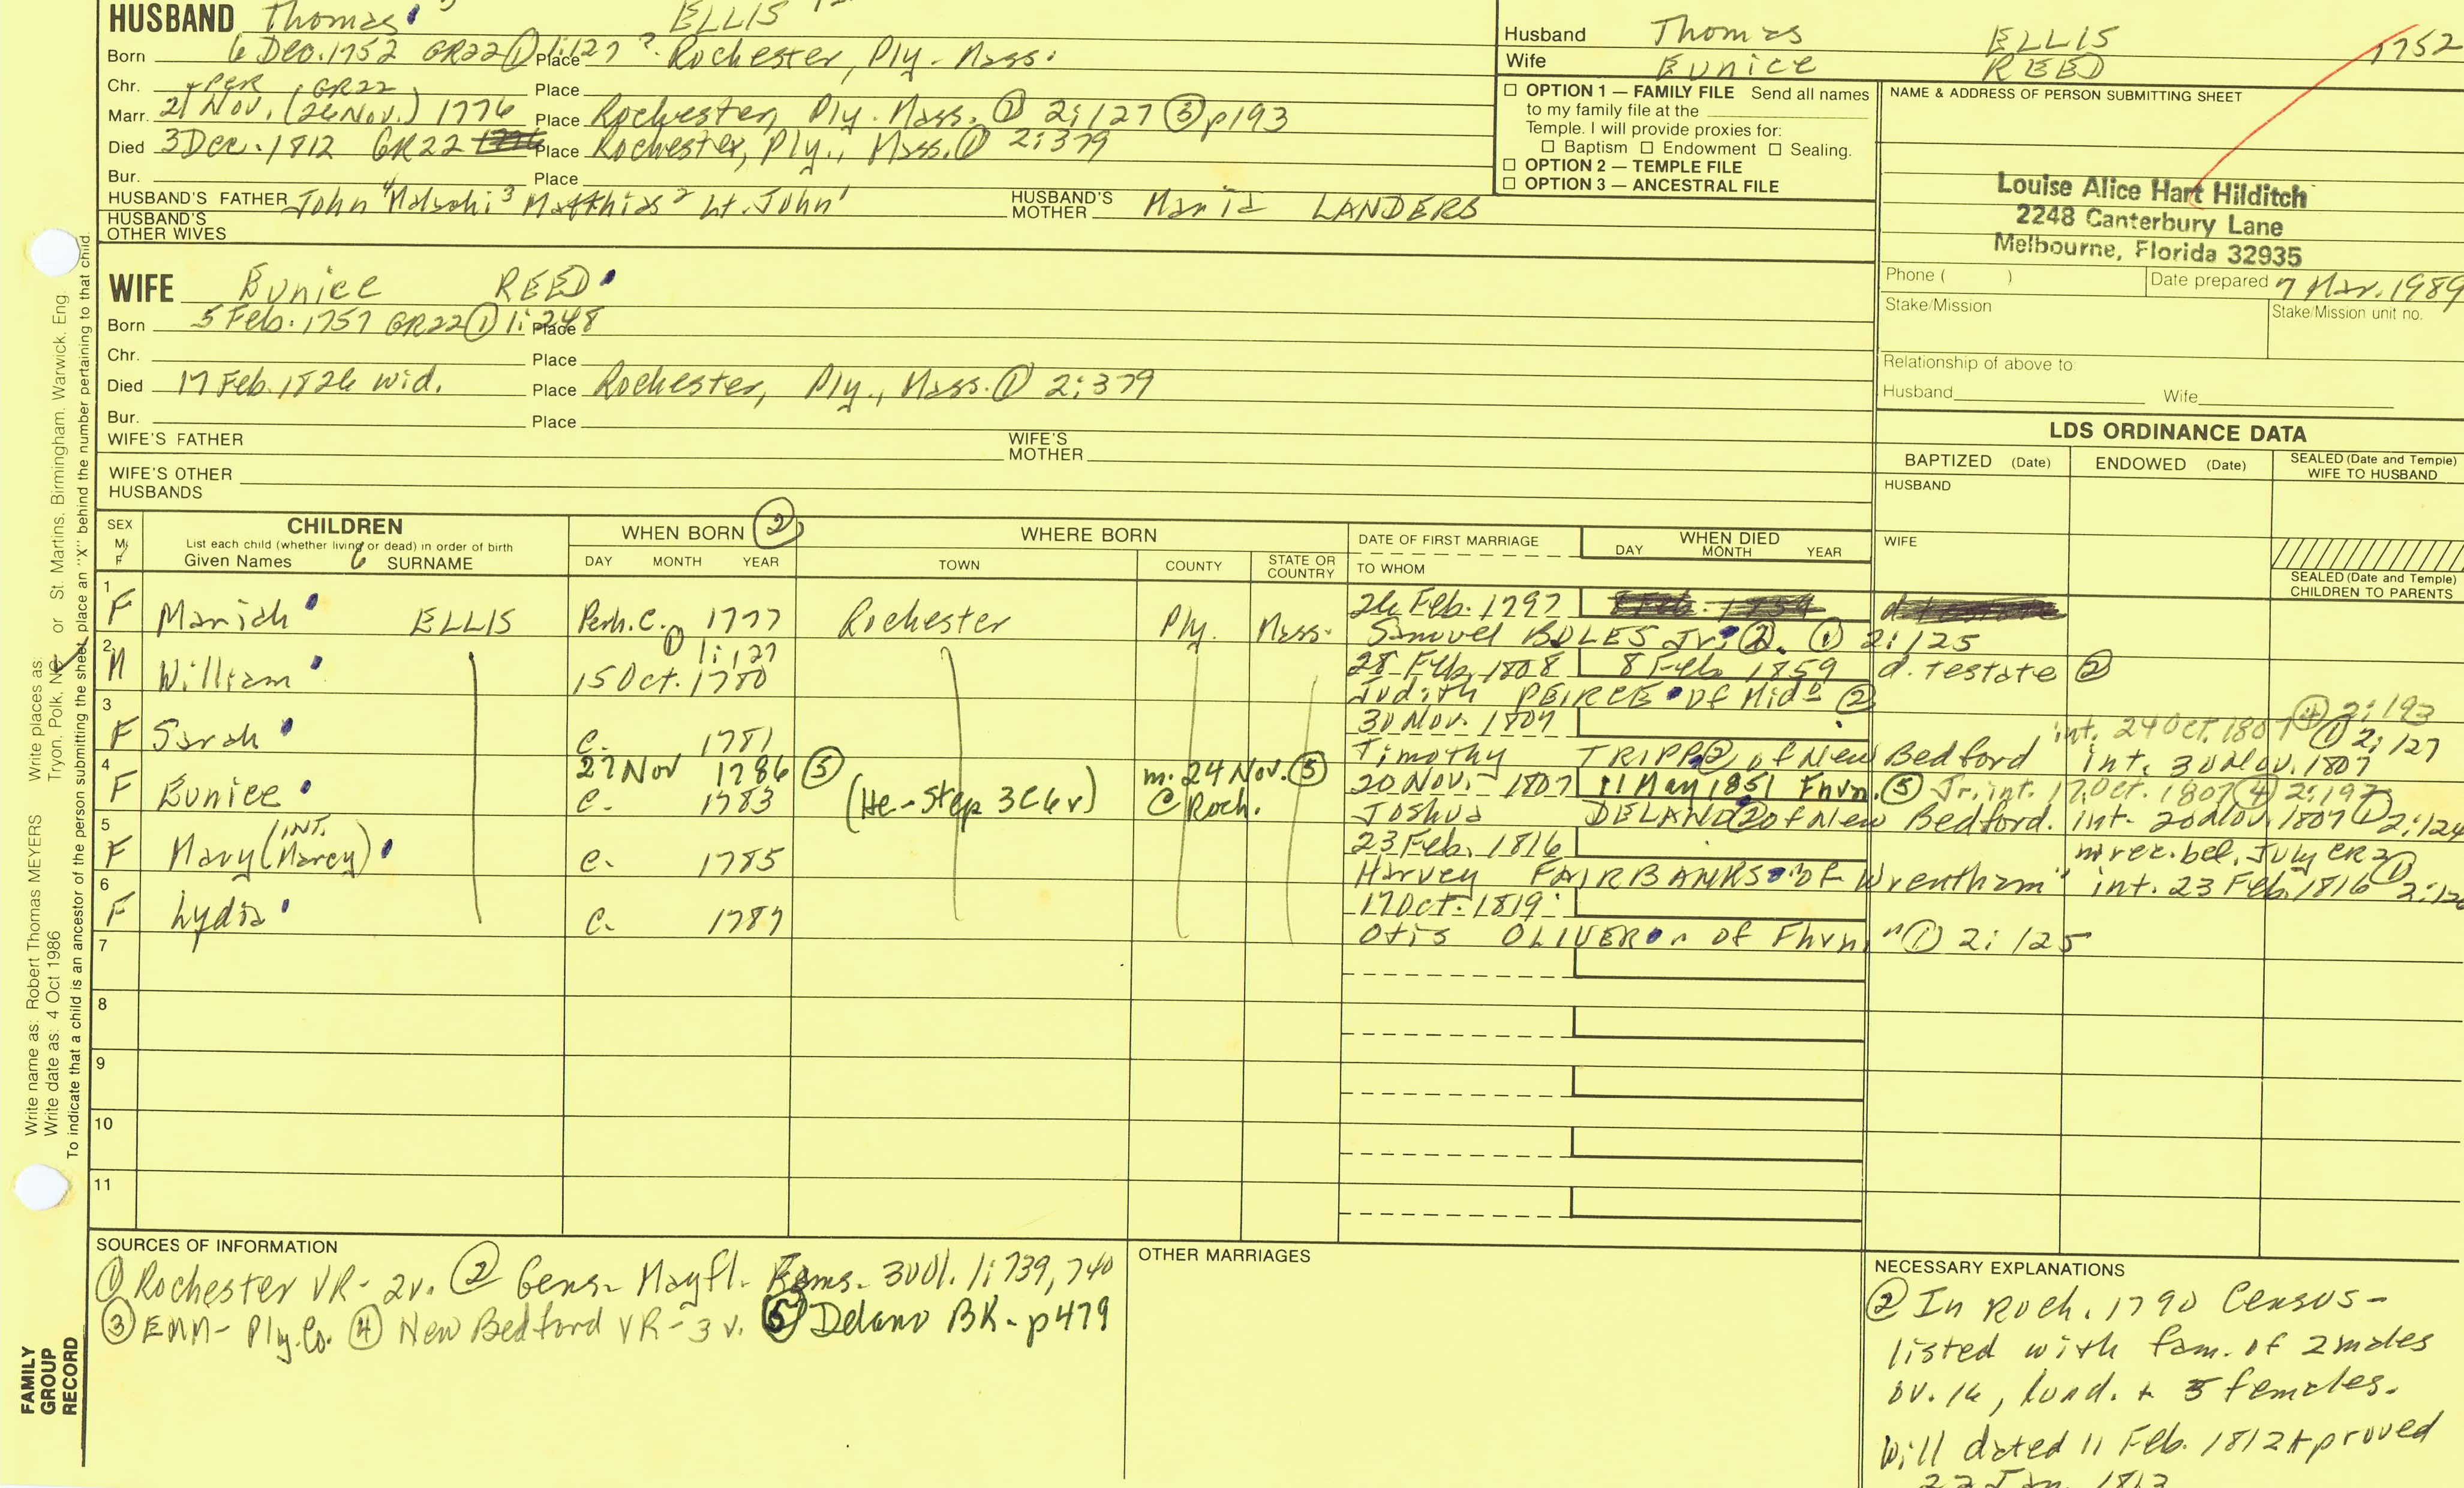 HUSBAND Thomas ELLIS
Born 6 Dec. 1752 GR22 ① 1:127 ? Place Rochester, Ply. Mass.
Chr. Place
+ PER GR22
Marr. 21 Nov. (26 Nov.) 1776 Place Rochester, Ply. Mass. ① 2:127 ③ p193
Died 3 Dec. 1812 GR22 Place Rochester, Ply., Mass. ① 2:379
Bur. Place
HUSBAND'S FATHER John 4 Malachi 3 Matthias 2 Lt. John 1 HUSBAND'S MOTHER Maria LANDERS
HUSBAND'S OTHER WIVES
Husband Thomas ELLIS 1752
Wife Eunice REED
☐ OPTION 1 — FAMILY FILE Send all names
to my family file at the
Temple. I will provide proxies for:
☐ Baptism ☐ Endowment ☐ Sealing.
☐ OPTION 2 — TEMPLE FILE
☐ OPTION 3 — ANCESTRAL FILE
NAME & ADDRESS OF PERSON SUBMITTING SHEET
Louise Alice Hart Hilditch
2248 Canterbury Lane
Melbourne, Florida 32935
Phone ( ) Date prepared 7 Mar. 1989
Stake/Mission Stake/Mission unit no.
Relationship of above to:
Husband Wife
WIFE Eunice REED
Born 5 Feb. 1757 GR22 ① 1:248 Place
Chr. Place
Died 17 Feb. 1826 wid. Place Rochester, Ply., Mass. ① 2:379
Bur. Place
WIFE'S FATHER WIFE'S MOTHER
WIFE'S OTHER HUSBANDS
LDS ORDINANCE DATA
BAPTIZED (Date) ENDOWED (Date) SEALED (Date and Temple) WIFE TO HUSBAND
HUSBAND
WIFE
SEALED (Date and Temple) CHILDREN TO PARENTS
SEX M/F CHILDREN WHEN BORN ② WHERE BORN DATE OF FIRST MARRIAGE WHEN DIED
List each child (whether living or dead) in order of birth
Given Names 6 SURNAME DAY MONTH YEAR TOWN COUNTY STATE OR COUNTRY TO WHOM DAY MONTH YEAR
1 F Mariah ELLIS Perh. C. 1777 Rochester Ply. Mass. 26 Feb. 1797
Samuel BOLES Jr. ② ① 2:125
2 M William ① 1:127 15 Oct. 1780 28 Feb. 1808 8 Feb. 1859 d. testate ②
Judith PEIRCE of Mid. ②
3 F Sarah C. 1781 30 Nov. 1807 int. 24 Oct. 1807 ④ 2:193
Timothy TRIPP ② of New Bedford int. 30 Nov. 1807 ① 2:127
4 F Eunice 27 Nov 1786 ⑤ m. 24 Nov. ⑤ @ Roch. 20 Nov. 1807 11 May 1851 Fhvn. ⑤ Jr. int. 17 Oct. 1807 ④ 2:197
C. 1783 (He-step 3C6r) Joshua DELANO ② of New Bedford. int. 20 Nov. 1807 ① 2:124
5 F Mary (INT. Marcy) C. 1785 23 Feb. 1816 m rec. bef. July CR2 ①
Harvey FAIRBANKS "of Wrentham" int. 23 Feb. 1816
6 F Lydia C. 1787 17 Oct. 1819
Otis OLIVER " of Fhvn." ① 2:125
7
8
9
10
11
SOURCES OF INFORMATION
① Rochester VR - 2v. ② Gens. Mayfl. Fams. 3 Vol. 1:739, 740
③ EMM - Ply. Co. ④ New Bedford VR - 3 v. ⑤ Delano BK - p479
OTHER MARRIAGES
NECESSARY EXPLANATIONS
② In Roch. 1790 Census -
listed with fam. of 2 males
ov. 16, 1 und. + 5 females.
Will dated 11 Feb. 1812 + proved
22 Jan. 1813
Write name as: Robert Thomas MEYERS Write places as: Tryon, Polk, NC or St. Martins, Birmingham, Warwick, Eng.
Write date as: 4 Oct 1986
To indicate that a child is an ancestor of the person submitting the sheet, place an "X" behind the number pertaining to that child.
FAMILY
GROUP
RECORD